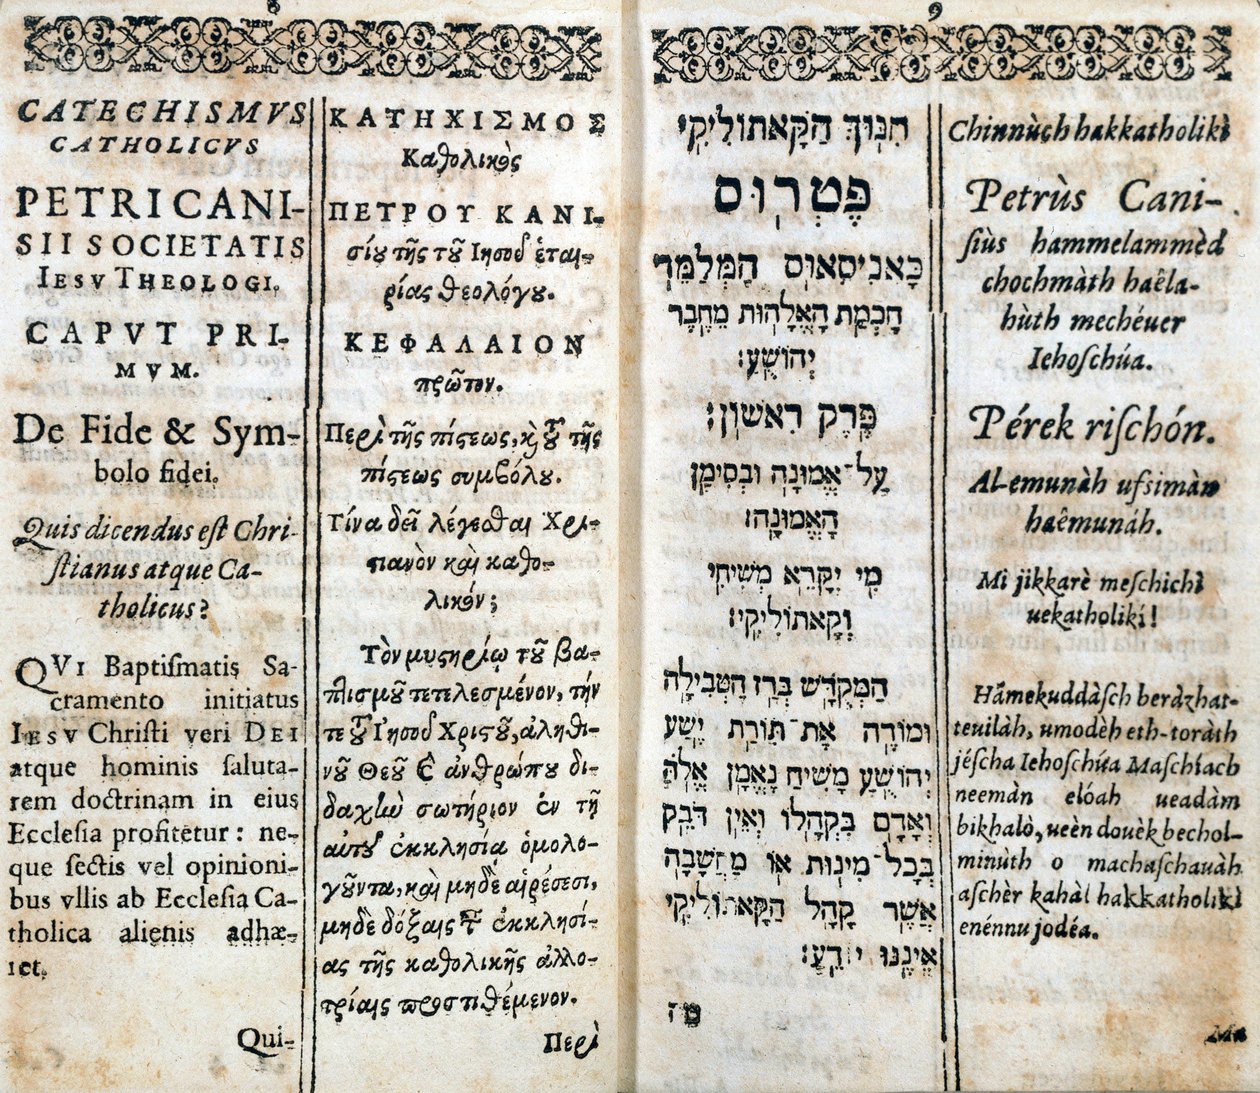 8
CATECHISMVS
CATHOLICVS
PETRI CANI-
SII SOCIETATIS
IESV THEOLOGI.
CAPVT PRI-
MVM.
De Fide & Sym-
bolo fidei.
Quis dicendus eſt Chri-
ſtianus atque Ca-
tholicus?
QVI Baptiſmatis Sa-
cramento initiatus
IESV Chriſti veri DEI
atque hominis ſaluta-
rem doctrinam in eius
Eccleſia profitetur: ne-
que ſectis vel opinioni-
bus vllis ab Eccleſia Ca-
tholica alienis adhæ-
ret.
Qui-
ΚΑΤΗΧΙΣΜΟΣ
Καθολικὸς
ΠΕΤΡΟΥ ΚΑΝΙ-
σίου τῆς τοῦ Ιησοῦ ἑται-
ρίας θεολόγου.
ΚΕΦΑΛΑΙΟΝ
πρῶτον.
Περὶ τῆς πίστεως, καὶ τοῦ τῆς
πίστεως συμβόλου.
Τίνα δεῖ λέγεσθαι Χρι-
στιανὸν καὶ καθο-
λικόν;
Τὸν μυστηρίῳ τοῦ βα-
πτισμοῦ τετελεσμένον, τήν
τε τοῦ Ιησοῦ Χριστοῦ, ἀληθι-
νοῦ Θεοῦ καὶ ἀνθρώπου δι-
δαχὴν σωτήριον ἐν τῇ
αὐτοῦ ἐκκλησίᾳ ὁμολο-
γοῦντα, καὶ μηδὲ αἱρέσεσι,
μηδὲ δόξαις τῆς ἐκκλησί-
ας τῆς καθολικῆς ἀλλο-
τρίαις προστιθέμενον.
Περὶ
9
חִנּוּךְ הַקָּאתוֹלִיקִי
פֶּטְרוּס
כָּאנִיסִאוּס הַמְּלַמֵּד
חָכְמַת הָאֱלָהוּת מֵחֶבֶר
יְהוֹשֻׁעַ׃
פֶּרֶק רִאשׁוֹן׃
עַל־אֱמוּנָה וּבְסִימָן
הָאֱמוּנָה׃
מִי יִקָּרֵא מְשִׁיחִי
וְקָאתוֹלִיקִי׃
הַמְקֻדָּשׁ בְּרָז הַטְּבִילָה
וּמוֹרֶה אֶת־תּוֹרַת יֶשַׁע
יְהוֹשֻׁעַ מָשִׁיחַ נֶאֱמָן אֱלֹהַּ
וְאָדָם בִּקְהָלוֹ וְאֵין דֹּבֵק
בְּכָל־מִינוּת אוֹ מַחֲשָׁבָה
אֲשֶׁר קָהָל הַקָּאתוֹלִיקִי
אֵינֶנּוּ יֹדֵעַ׃
Chinnùch hakkatholikì
Petrùs Cani-
ſiùs hammelammèd
chochmàth haêla-
hùth mechéuer
Iehoſchúa.
Pérek riſchón.
Al-emunàh ufsimàn
haêmunáh.
Mì jikkarè meſchichì
uekatholikí!
Hámekuddàſch beràzhat-
teuilàh, umodèh eth-toràth
jéſcha Iehoſchúa Maſchíach
neemàn elóah ueadàm
bikhalò, ueèn douèk bechol-
minùth o machaſchauàh
aſchèr kahàl hakkatholikì
enénnu jodéa.